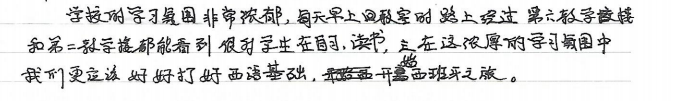 学校的学习氛围非常浓郁，每天早上回教室时路上经过第六教学楼
和第二教学楼都能看到很多学生在自习、读书，在这浓厚的学习氛围中
我们更应该好好打好西语基础，开始西班牙之旅。